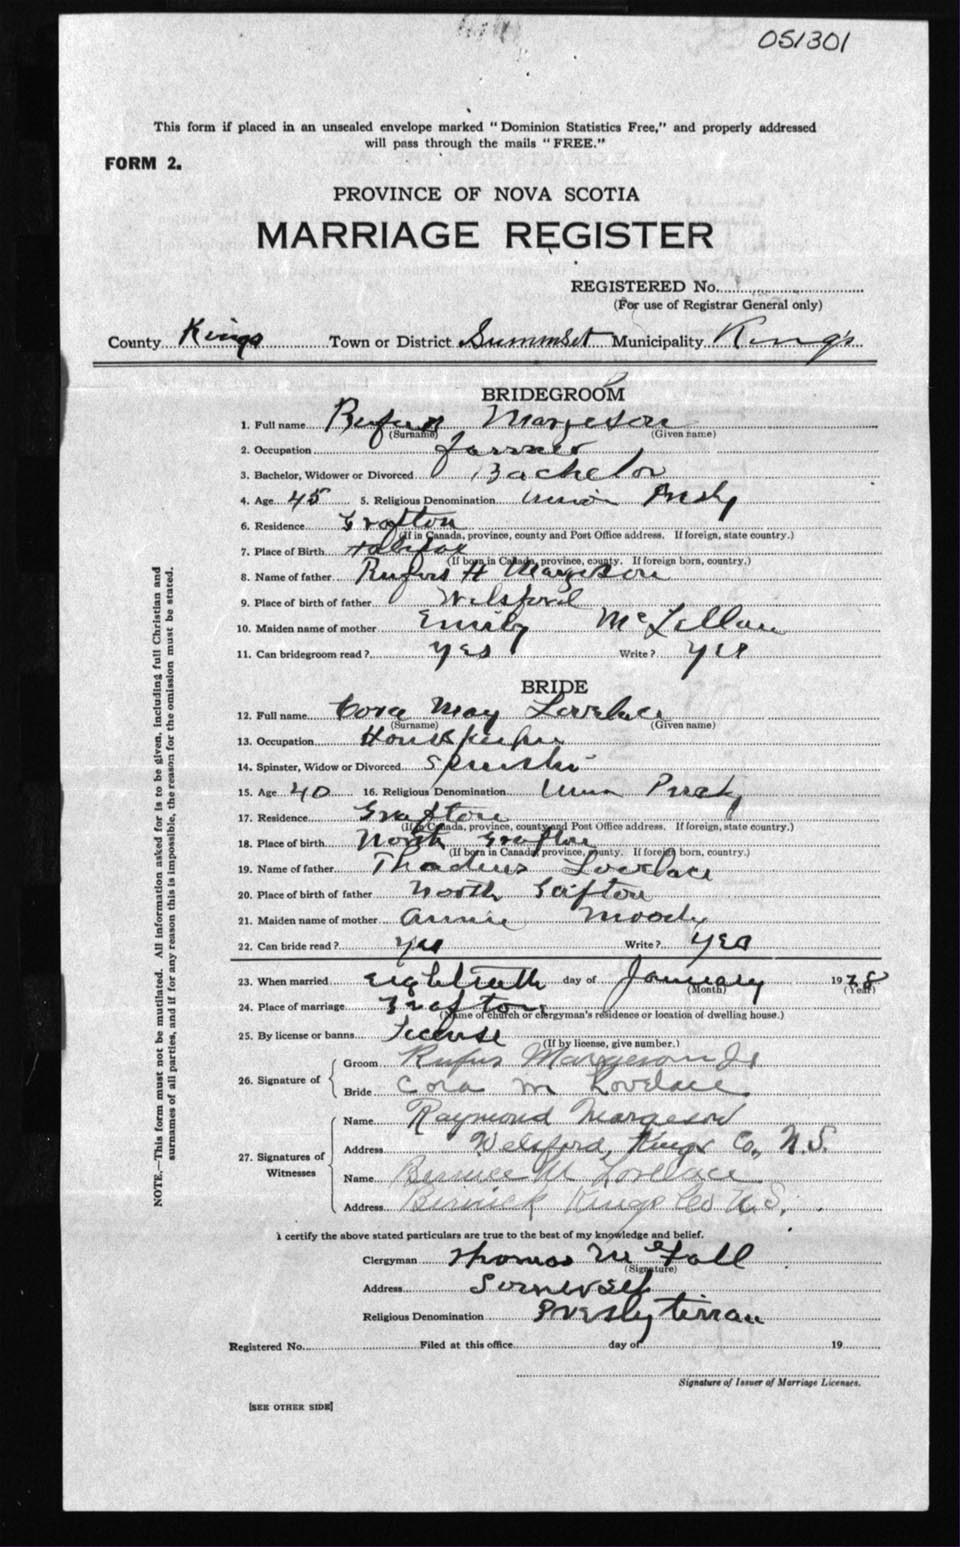 051301
This form if placed in an unsealed envelope marked "Dominion Statistics Free," and properly addressed
will pass through the mails "FREE."
FORM 2.
PROVINCE OF NOVA SCOTIA
MARRIAGE REGISTER
REGISTERED No.
(For use of Registrar General only)
County Kings Town or District Summset Municipality King's
BRIDEGROOM
1. Full name Rufus Margeson
(Surname) (Given name)
2. Occupation farmer
3. Bachelor, Widower or Divorced Bachelor
4. Age 45 5. Religious Denomination Union Presby
6. Residence Grafton
(If in Canada, province, county and Post Office address. If foreign, state country.)
7. Place of Birth Halifax
(If born in Canada, province, county. If foreign born, country.)
8. Name of father Rufus H Margeson
9. Place of birth of father Welsford
10. Maiden name of mother Emily McLellan
11. Can bridegroom read? yes Write? yes
BRIDE
12. Full name Cora May Lovelace
(Surname) (Given name)
13. Occupation Housekeeper
14. Spinster, Widow or Divorced Spinster
15. Age 40 16. Religious Denomination Union Presby
17. Residence Grafton
(If in Canada, province, county and Post Office address. If foreign, state country.)
18. Place of birth North Grafton
(If born in Canada, province, county. If foreign born, country.)
19. Name of father Thadeus Lovelace
20. Place of birth of father North Grafton
21. Maiden name of mother Annie Moody
22. Can bride read? yes Write? yes
23. When married day of January 1928
(Month) (Year)
24. Place of marriage Grafton
(Name of church or clergyman's residence or location of dwelling house.)
25. By license or banns License
(If by license, give number.)
26. Signature of
Groom Rufus Margeson Jr
Bride Cora M Lovelace
27. Signatures of Witnesses
Name Raymond Margeson
Address Welsford, Kings Co., N.S.
Name Bernice M Lovelace
Address Berwick Kings Co N.S.
I certify the above stated particulars are true to the best of my knowledge and belief.
Clergyman Thomas McFall
(Signature)
Address Somerset
Religious Denomination Presbyterian
Registered No. Filed at this office day of 19
Signature of Issuer of Marriage Licenses.
[SEE OTHER SIDE]
NOTE.—This form must not be mutilated. All information asked for is to be given, including full Christian and
surnames of all parties, and if for any reason this is impossible, the reason for the omission must be stated.